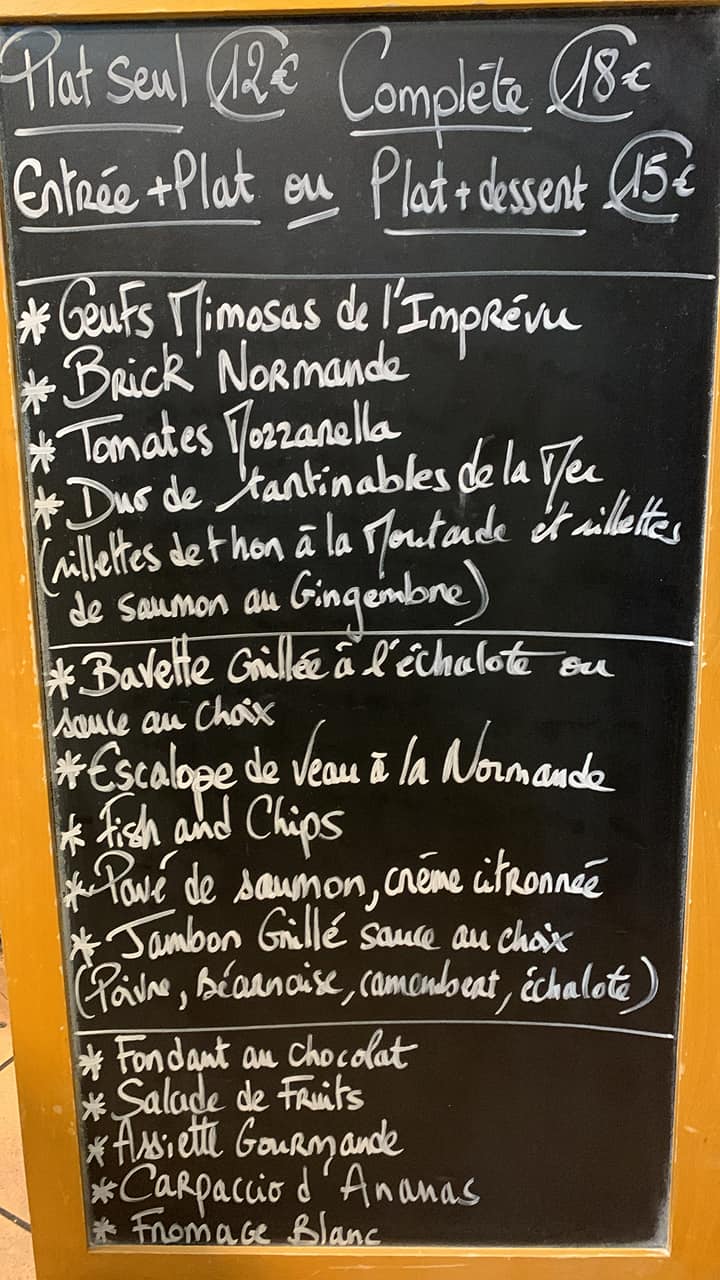 Plat seul 12€ Complète 18€
Entrée + Plat ou Plat + dessert 15€
* Oeufs Mimosas de l'Imprévu
* Brick Normande
* Tomates Mozzarella
* Duo de tartinables de la Mer
(rillettes de thon à la Moutarde et rillettes
de saumon au Gingembre)
* Bavette Grillée à l'échalote ou
sauce au choix
* Escalope de Veau à la Normande
* Fish and Chips
* Pavé de saumon, crème citronnée
* Jambon Grillé sauce au choix
(Poivre, Béarnaise, camembert, échalote)
* Fondant au chocolat
* Salade de Fruits
* Assiette Gourmande
* Carpaccio d'Ananas
* Fromage Blanc